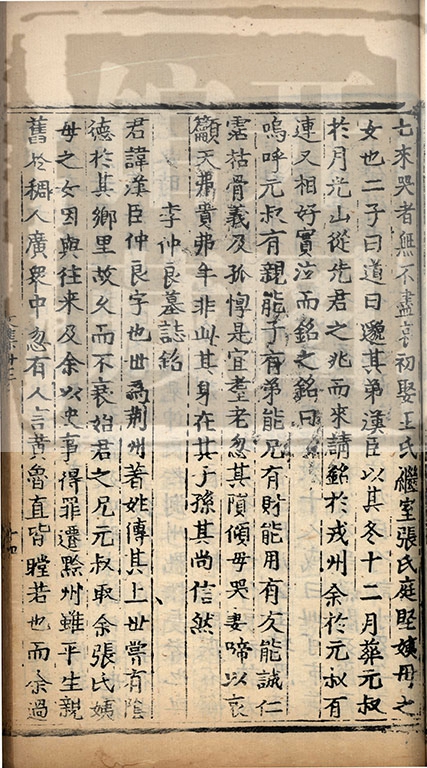 七来哭者無不盡哀初娶王氏繼室張氏庭堅姨母之
女也二子曰道曰邈其弟漢臣以其冬十二月葬元叔
於月光山從先君之兆而來請銘於戎州余於元叔有
連又相好實泣而銘之銘曰
嗚呼元叔有親能子有弟能兄有財能用有友能誠仁
霑枯骨義及孤惸是宜耋老忽其隕傾母哭妻啼以哀
籲天弗貴弗年非此其身在其子孫其尚信然
李仲良墓誌銘
君諱漢臣仲良字也世為荆州著姓傳其上世嘗有陰
德於其鄉里故久而不衰始君之兄元叔取余張氏姨
母之女因與往来及余以史事得罪遷黔州雖平生親
舊於稠人廣衆中忽有人言黄魯直皆瞠若也而余過
集廿三
十四